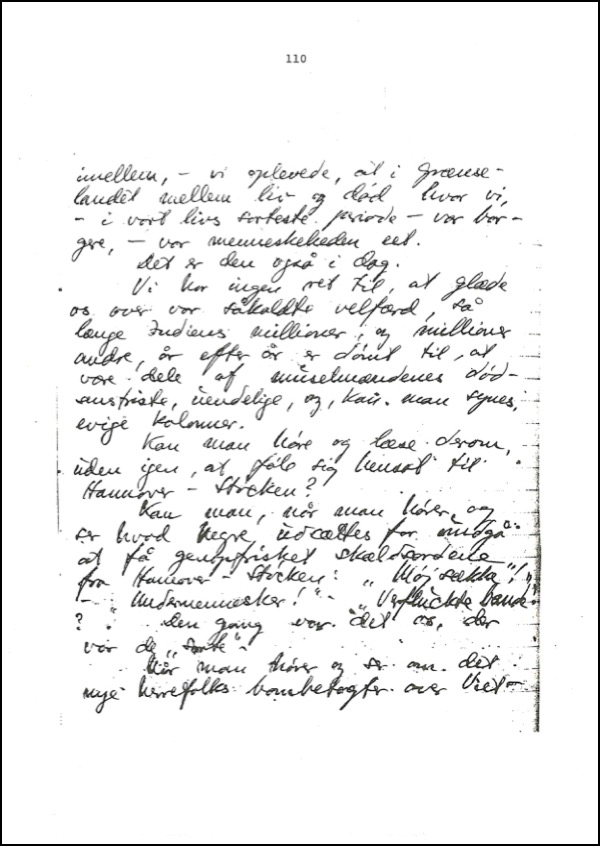 110
imellem, - vi oplevede, at i grænse-
landet mellem liv og død hvor vi,
- i vort livs sorteste periode - var bor-
gere, - var menneskeheden eet.
Det er den også i dag.
Vi har ingen ret til, at glæde
os over vor såkaldte velfærd, så
længe Indiens millioner, og millioner
andre, år efter år er dømt til, at
være dele af muselmændenes død-
ansfriste, uendelige, og, kan man synes,
evige kolonner.
Kan man høre og læse derom,
uden igen, at føle sig hensat til
Hannover - Stöcken?
Kan man, når man hører, og
ser hvad Negre udsættes for undgå
at få genopfrisket skældsordene
fra Hannover - Stöcken: "Möjsække"!
- "Undermennesker!" - "Verfluckte bande"
? Den gang var det os, der
var de "sorte".
Når man hører og ser om det
nye herrefolks bombetogter over Viet-